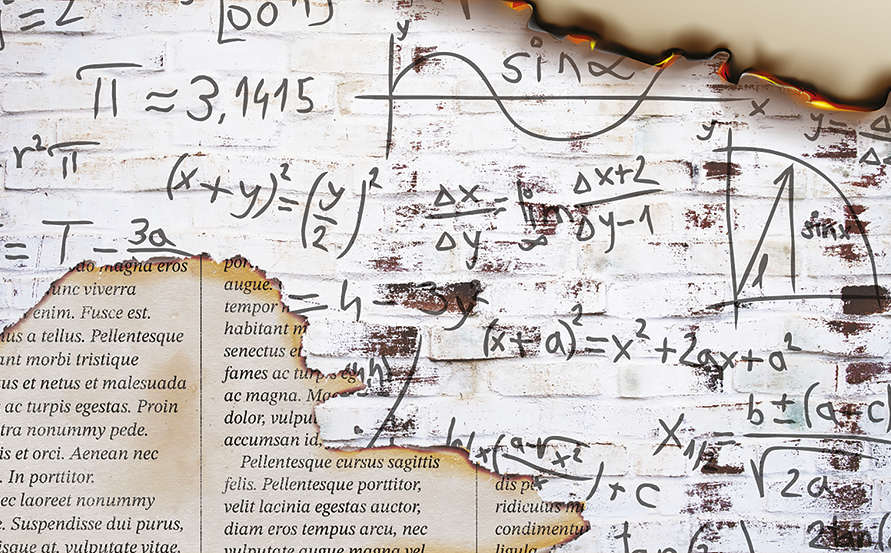 = 2
sin α
y
x
π ≈ 3,1415
r² π
(x + y)² = (y/2)²
Δx/Δy = lim ∞ Δx+2/Δy-1
y
sin x
y = Δ
= T - 3a
= h - 3y²
(x + a)² = x² + 2ax + a²
X₁/₂ = b ± (a + c)
√2a
+ c
tan(
2tan(
do magna eros
unc viverra
enim. Fusce est.
us a tellus. Pellentesque
ant morbi tristique
us et netus et malesuada
ac turpis egestas. Proin
tra nonummy pede.
is et orci. Aenean nec
. In porttitor.
ec laoreet nonummy
e. Suspendisse dui purus,
isque at, vulputate vitae,
por
augue.
tempor
habitant m
senectus et
fames ac turpis eg
ac magna. Ma
dolor, vulpu
accumsan id,
Pellentesque cursus sagittis
felis. Pellentesque porttitor,
velit lacinia egestas auctor,
diam eros tempus arcu, nec
vulputate augue magna vel
dis pa
ridiculus mu
condimentu
ligula